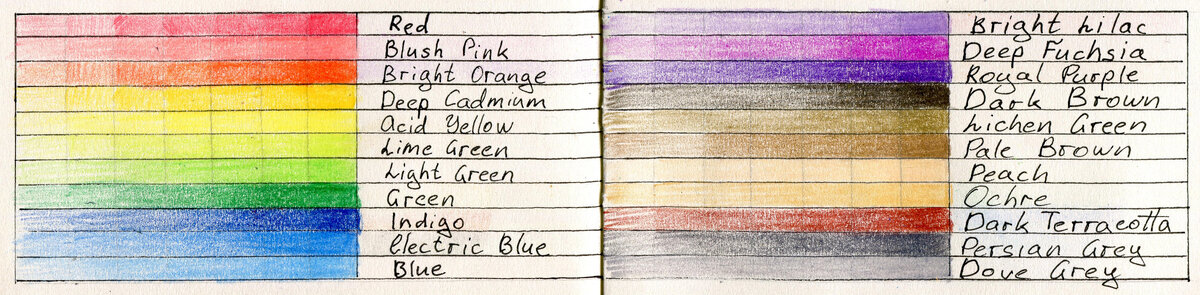 Red
Blush Pink
Bright Orange
Deep Cadmium
Acid Yellow
Lime Green
Light Green
Green
Indigo
Electric Blue
Blue
Bright Lilac
Deep Fuchsia
Royal Purple
Dark Brown
Lichen Green
Pale Brown
Peach
Ochre
Dark Terracotta
Persian Grey
Dove Grey